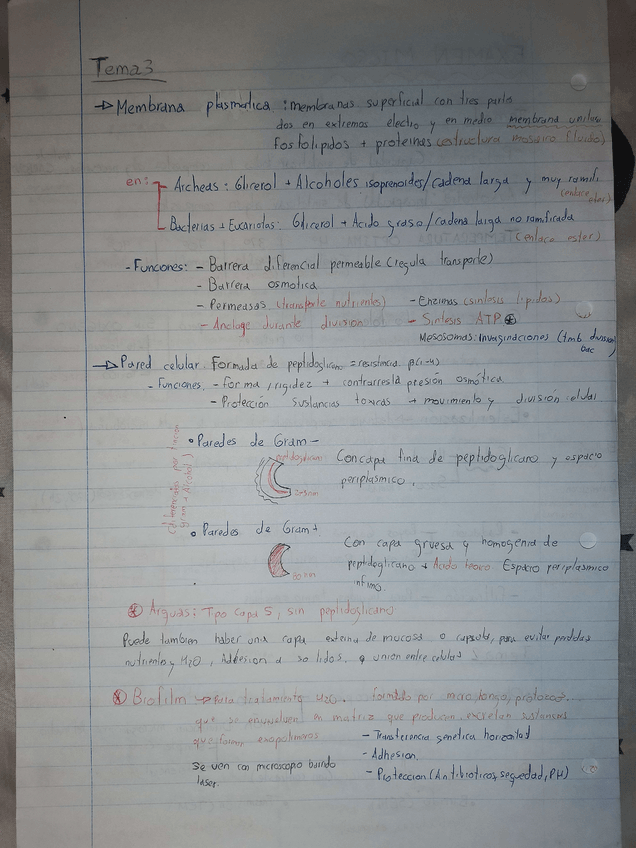 Tema 3
→ Membrana plasmatica : membranas superficial con tres parta
dos en extremos electro y en medio membrana unitaria
Fosfolipidos + proteinas (estructura mosaico fluido)
en: Archeas : Glicerol + Alcoholes isoprenoides/cadena larga y muy ramifi
(enlace eter)
Bacterias + Eucariotas: Glicerol + Acido graso/cadena larga no ramificada
(enlace ester)
- Funciones: - Barrera diferencial permeable (regula transporte)
- Barrera osmotica
- Permeasas (transporte nutrientes) - Enzimas (sintesis lipidos)
- Anclage durante division - Sintesis ATP
Mesosomas: Invaginaciones (tmb division
bac
→ Pared celular Formada de peptidoglicano = resistencia β(1-4)
- Funciones, - forma, rigidez + contrarresta presión osmótica
- Protección sustancias toxicas + movimiento y división celular
• Paredes de Gram -
peptidoglicano
Con capa fina de peptidoglicano y espacio
periplasmico.
diferenciadas por tincion
gram + Alcohol
• Paredes de Gram +
Con capa gruesa y homogenia de
peptidoglicano + Acido teoico. Espacio periplasmico
infimo.
Arqueas: Tipo capa S, sin peptidoglicano
Puede tambien haber una capa externa de mucosa o capsula, para evitar perdidas
nutrientes y H2O, Adhesion a solidos, o union entre celulas
Biofilm → Para tratamiento H2O. formado por micro, hongo, protozoo.
que se envuelven en matriz que producen, excretan sustancias
que forman exopolimeros
- Transferencia genetica horizontal
Se ven con microscopio barrido - Adhesion
laser. - Proteccion (Antibioticos, sequedad, PH)